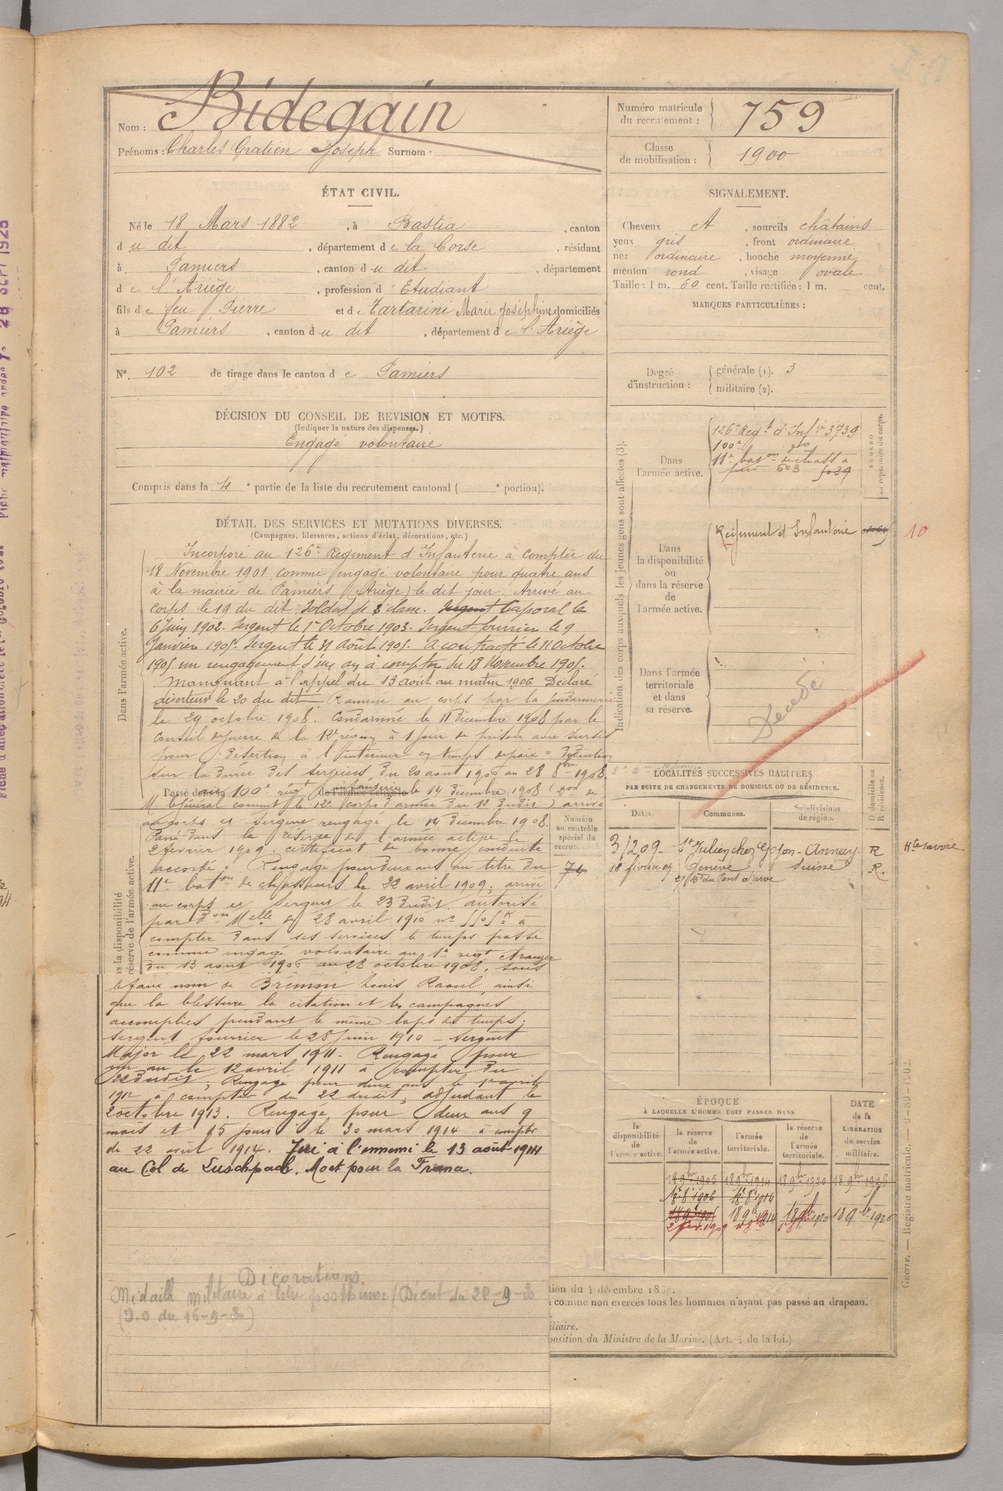 Nom : Bidegain
Prénoms : Charles Gratien Joseph Surnom :
Numéro matricule du recrutement : 759
Classe de mobilisation : 1900
ÉTAT CIVIL.
Né le 18 Mars 1882, à Bastia, canton
du dit, département de la Corse, résidant
à Pamiers, canton du dit, département
de l'Ariège, profession d'Etudiant
fils de feu Pierre et de Tartarini Marie Josephine domiciliés
à Pamiers, canton du dit, département de l'Ariège
N° 102 de tirage dans le canton de Pamiers
SIGNALEMENT.
Cheveux et, sourcils châtains
yeux gris, front ordinaire
nez ordinaire, bouche moyenne
menton rond, visage ovale
Taille : 1 m. 60 cent. Taille rectifiée : 1 m. cent.
MARQUES PARTICULIÈRES :
Degré d'instruction : générale (1). 3
militaire (2).
DÉCISION DU CONSEIL DE REVISION ET MOTIFS.
(Indiquer la nature des dispenses.)
Engagé volontaire
Compris dans la 4e partie de la liste du recrutement cantonal ( e portion).
DÉTAIL DES SERVICES ET MUTATIONS DIVERSES.
(Campagnes, blessures, actions d'éclat, décorations, etc.)
Dans l'armée active.
Incorporé au 126e Régiment d'Infanterie à compter du
18 Novembre 1901 comme engagé volontaire pour quatre ans
à la mairie de Pamiers (Ariège) le dit jour. Arrivé au
corps le 19 du dit. Soldat de 2e classe. Sergent Caporal le
6 Juin 1902. Sergent le 1er Octobre 1903. Sergent fourrier le 9
Janvier 1905. Sergent le 21 août 1905. A contracté le 11 Octobre
1905 un rengagement d'un an à compter du 18 Novembre 1905.
Manquant à l'appel du 13 août au matin 1906 Déclaré
déserteur le 20 du dit Ramené au corps par la gendarmerie
le 29 octobre 1908. Condamné le 11 Décembre 1908 par le
Conseil de guerre de la 12e région à 1 jour de prison avec sursis
pour désertion à l'intérieur en temps de paix. Déduction
sur la durée des services, du 20 aout 1906 au 28 8bre 1908
Passé dans 100e rég d'infanterie le 14 Décembre 1908
M. Général commt le 12e Corps d'armée du 11 dudit) arrivé
au corps et sergent rengagé le 14 Décembre 1908.
Passé dans la réserve de l'armée active le
2 février 1909. certificat de bonne conduite
accordé. Rengagé pour deux ans au titre du
11e baton de chasseurs le 22 avril 1909, arrivé
au corps et sergent le 23 dudit. autorisé
par Don Melle du 28 avril 1910 à
compter dans ses services le temps passé
comme engagé volontaire au 1er regt étranger
du 13 aout 1906 au 28 octobre 1908, sous
le faux nom de Brémon Louis Raoul, ainsi
que la blessure la citation et les campagnes
accomplies pendant le même laps de temps.
sergent fourrier le 28 juin 1910 – Sergent
Major le 22 mars 1911 – Rengagé pour
un an le 12 avril 1911 à compter du
22 dudit, Rengagé pour deux ans le 1er avril
1912 à compter du 22 dudit, adjudant le
2 octobre 1913. Rengagé pour deux ans 9
mois et 15 jours le 30 mars 1914 à compter
du 22 avril 1914. Tué à l'ennemi le 13 août 1914
au Col de Luschpach. Mort pour la France.
Décorations.
Médaille militaire à titre posthume (Décret du 28-9-20
(J.O du 16-9-20)
Indication des corps auxquels les jeunes gens sont affectés (3).
Dans l'armée active.
126e Régt d'Infie 3739
100e
11e baton
Dans la disponibilité ou dans la réserve de l'armée active.
Régiment d'Infanterie 10
Dans l'armée territoriale et dans sa réserve.
Décédé
LOCALITÉS SUCCESSIVES HABITÉES
PAR SUITE DE CHANGEMENTS DE DOMICILE OU DE RÉSIDENCE.
Dates. Communes. Subdivisions de région. Domicile ou Résidence.
Numéro au contrôle spécial du recrut.
74
3/2 09 – St Julien chez – Annecy R Hte Savoie
18 février 09 Genève Suisse R.
ÉPOQUE
À LAQUELLE L'HOMME DOIT PASSER DANS
la disponibilité de l'armée active.
la réserve de l'armée active.
l'armée territoriale.
la réserve de l'armée territoriale.
DATE de la LIBÉRATION du service militaire.
comme non exercés tous les hommes n'ayant pas passé au drapeau.
position du Ministre de la Marine. (Art. 4 de la loi.)